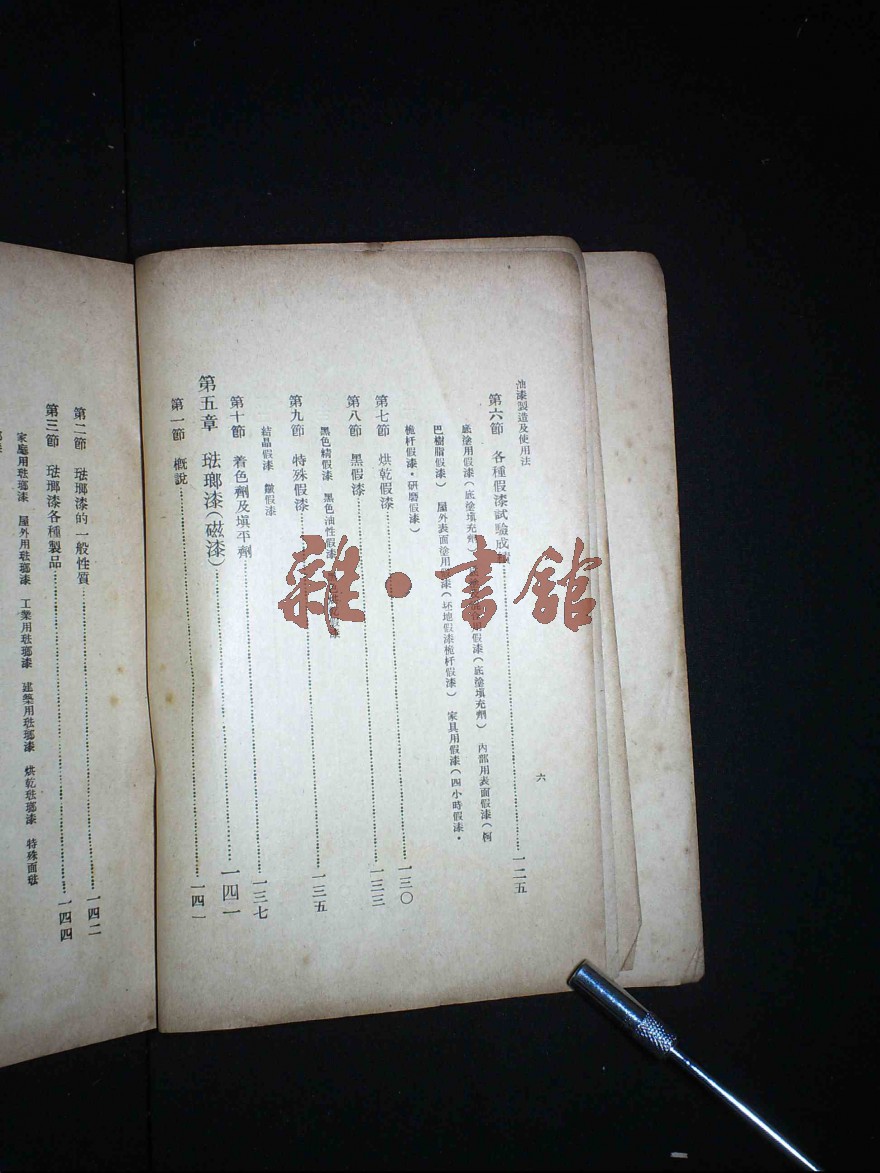 油漆製造及使用法
六
第六節 各種假漆試驗成績……一二五
底塗用假漆(底塗填充劑) 假漆(底塗填充劑) 內部用表面假漆(柯
巴樹脂假漆) 屋外表面塗用 漆(坯地假漆桅杆假漆) 家具用假漆(四小時假漆・
桅杆假漆・研磨假漆)
第七節 烘乾假漆……一三〇
第八節 黑假漆……一三三
黑色精假漆 黑色油性假漆
第九節 特殊假漆……一三五
結晶假漆 皺假漆
第十節 着色劑及填平劑……一三七
第五章 琺瑯漆(磁漆)……一四一
第一節 概說……一四一
第二節 琺瑯漆的一般性質……一四二
第三節 琺瑯漆各種製品……一四四
家庭用琺瑯漆 屋外用琺瑯漆 工業用琺瑯漆 建築用琺瑯漆 烘乾琺瑯漆 特殊面琺
雜・書館